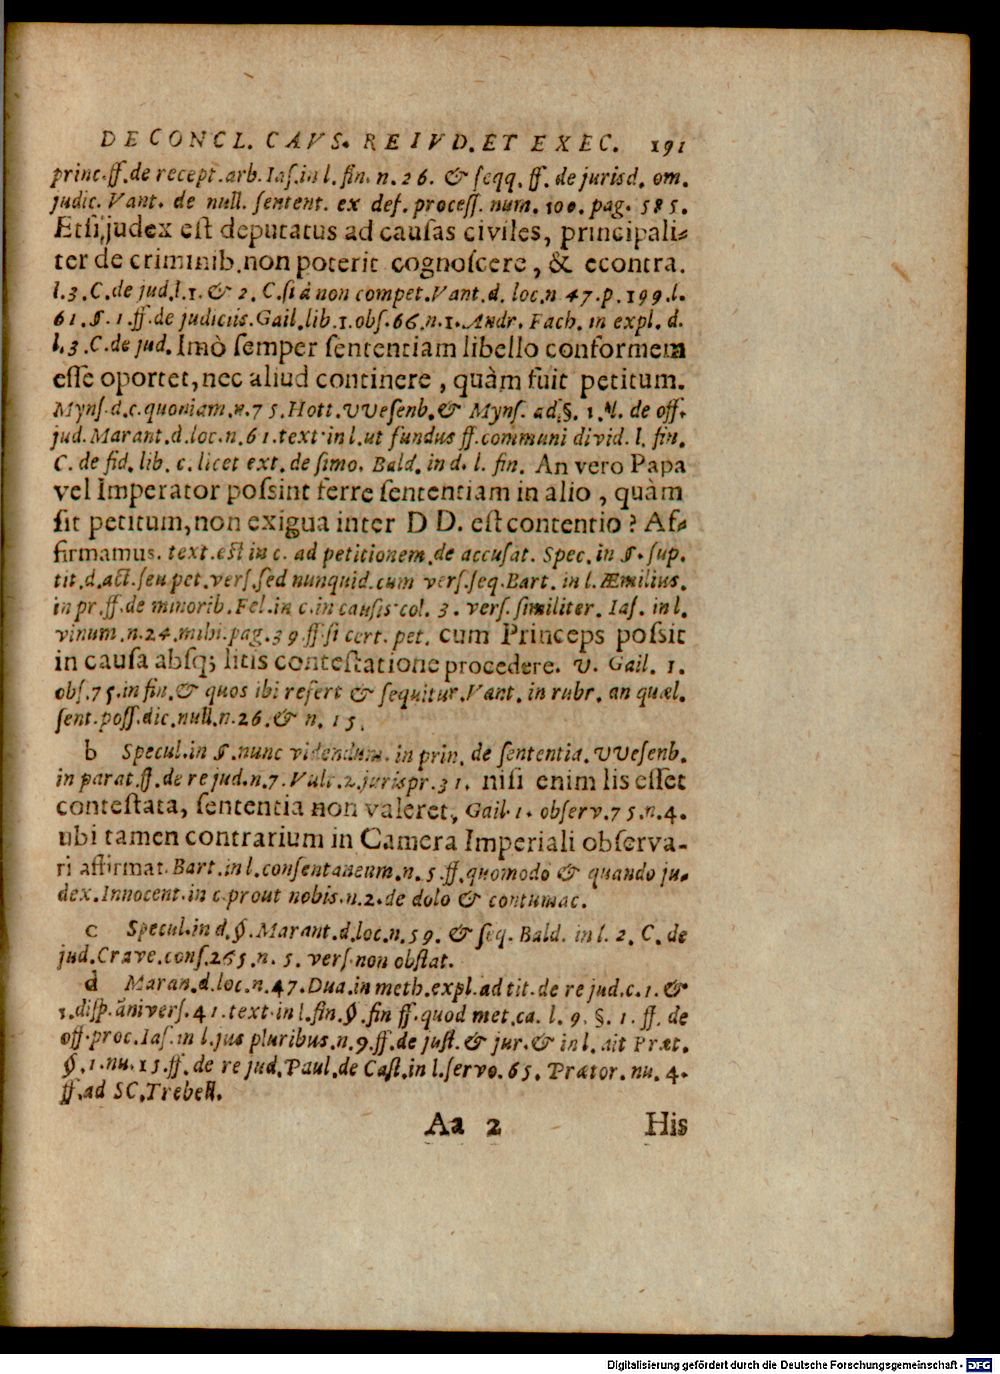 DE CONCL. CAVS. RE IVD. ET EXEC. 191
princ. ff. de recept. arb. Ias. in l. fin. n. 26. & seqq. ff. de jurisd. om.
judic. Vant. de null. sentent. ex def. process. num. 100. pag. 585.
Etsi, judex est deputatus ad causas civiles, principali-
ter de criminib. non poterit cognoscere, & econtra.
l. 3. C. de jud. l. 1. & 2. C. si à non compet. Vant. d. loc. n 47. p. 199. l.
61. §. 1. ff. de judiciis. Gail. lib. 1. obs. 66. n. 1. Andr. Fach. in expl. d.
l. 3. C. de jud. Imò semper sententiam libello conformem
esse oportet, nec aliud continere, quàm fuit petitum.
Myns. d. c. quoniam. n. 75. Hott. VVesenb. & Myns. ad §. 1. de off.
jud. Marant. d. loc. n. 61. text. in l. ut fundus ff. communi divid. l. fin.
C. de fid. lib. c. licet ext. de simo. Bald. in d. l. fin. An vero Papa
vel Imperator possint ferre sententiam in alio, quàm
sit petitum, non exigua inter DD. est contentio? Af-
firmamus. text. est in c. ad petitionem. de accusat. Spec. in §. sup.
tit. d. act. seu pet. vers. sed nunquid. cum vers. seq. Bart. in l. Æmilius.
in pr. ff. de minorib. Fel. in c. in causis col. 3. vers. similiter. Ias. in l.
vinum. n. 24. mihi. pag. 39. ff. si cert. pet. cum Princeps possit
in causa absq; litis contestatione procedere. v. Gail. 1.
obs. 75. in fin. & quos ibi refert & sequitur. Vant. in rubr. an quæl.
sent. poss. dic. null. n. 26. & n. 15.
b Specul. in §. nunc videndum. in prin. de sententia. VVesenb.
in parat. ff. de re jud. n. 7. Vult. 2. jurispr. 31. nisi enim lis esset
contestata, sententia non valeret, Gail. 1. observ. 75. n. 4.
ubi tamen contrarium in Camera Imperiali observa-
ri affirmat. Bart. in l. consentaneum. n. 5. ff. quomodo & quando ju-
dex. Innocent. in c. prout nobis. n. 2. de dolo & contumac.
c Specul. in d. §. Marant. d. loc. n. 59. & seq. Bald. in l. 2. C. de
jud. Crave. cons. 265. n. 5. vers. non obstat.
d Maran. d. loc. n. 47. Dua. in meth. expl. ad tit. de re jud. c. 1. &
1. disp. anivers. 41. text. in l. fin. §. fin ff. quod met. ca. l. 9. §. 1. ff. de
off. proc. Ias. in l. jus pluribus. n. 9. ff. de just. & jur. & in l. ait Præt.
§. 1. nu. 15. ff. de re jud. Paul. de Cast. in l. servo. 65. Prætor. nu. 4.
ff. ad SC. Trebell.
Aa 2 His
Digitalisierung gefördert durch die Deutsche Forschungsgemeinschaft - DFG